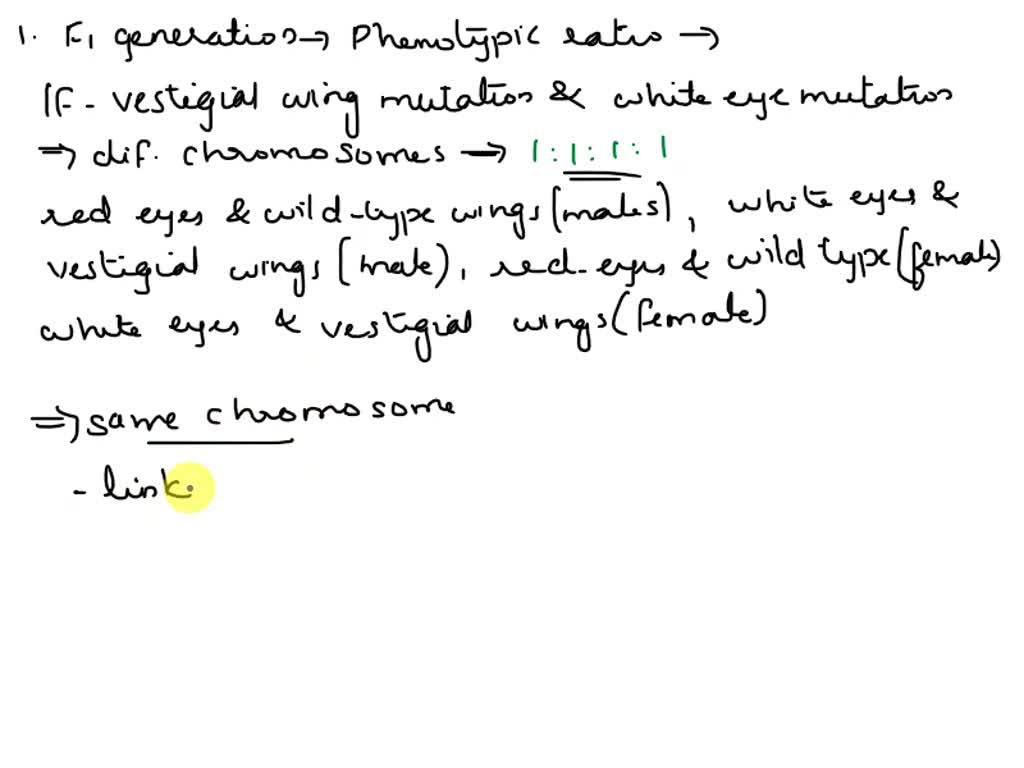 1. F1 generation → Phenotypic ratio →
If - vestigial wing mutation & white eye mutation
⇒ dif. chromosomes → 1:1:1:1
red eyes & wild-type wings (males), white eyes &
vestigial wings (male), red-eyes & wild type (female)
white eyes & vestigial wings (female)
⇒ same chromosome
- link